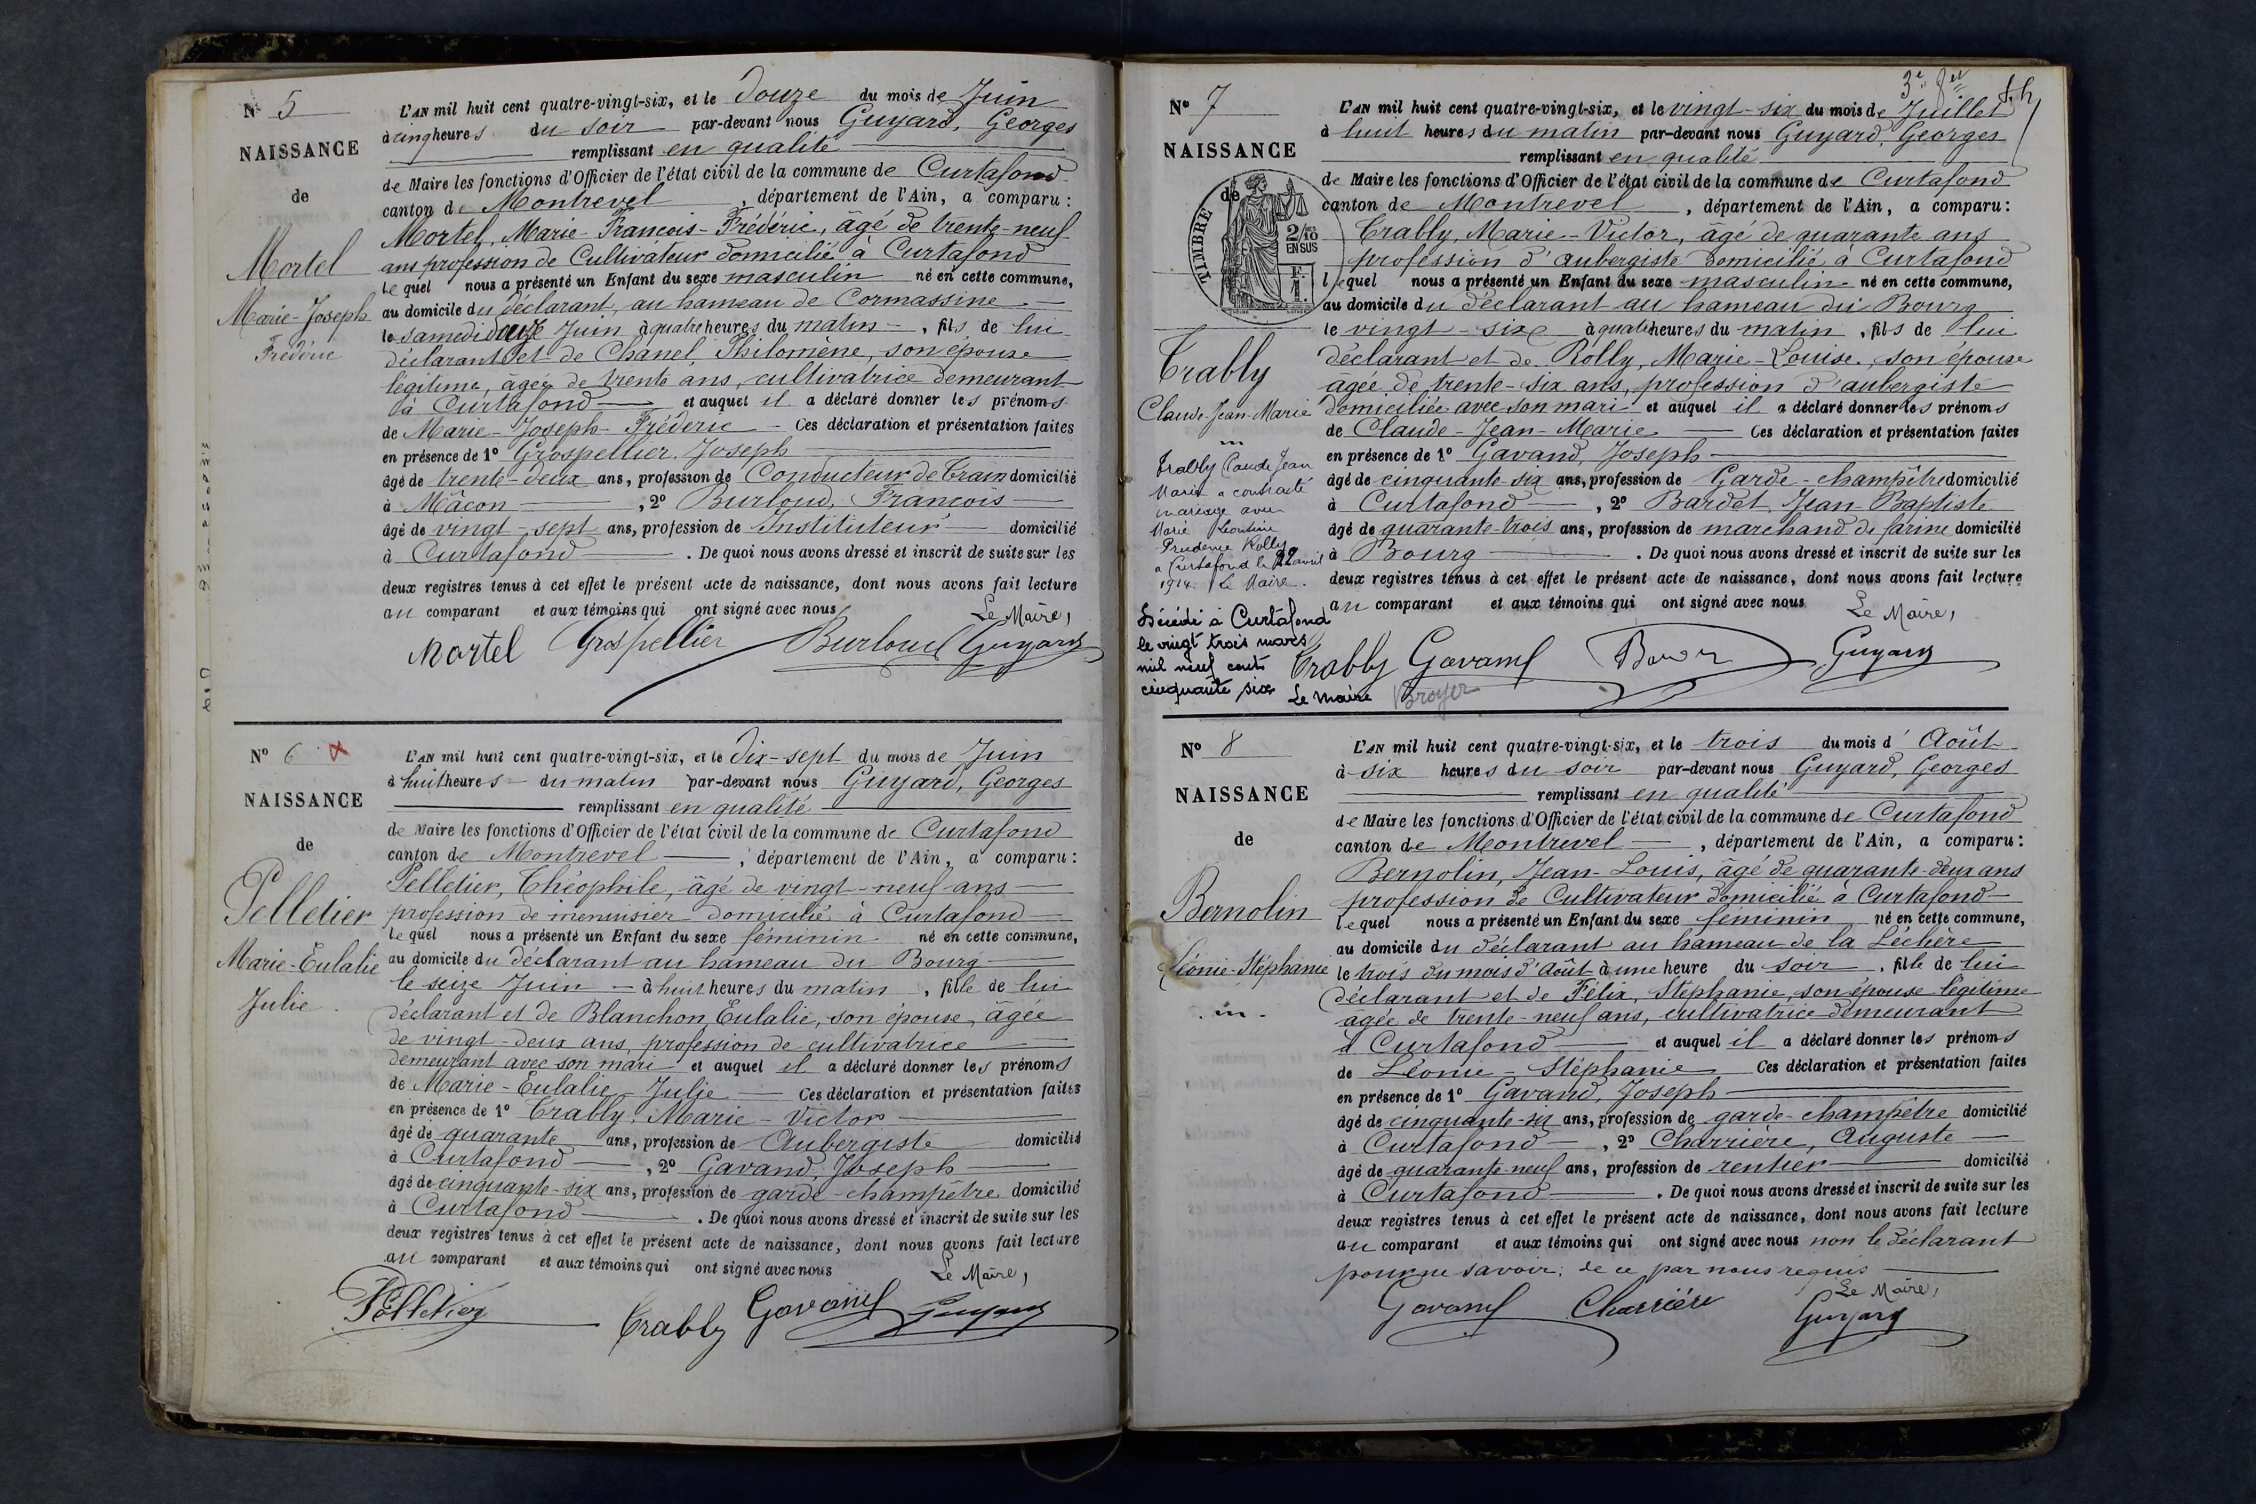 N° 5
NAISSANCE
de
Mortel
Marie-Joseph
Frédéric
L'AN mil huit cent quatre-vingt-six, et le douze du mois de Juin
à cinq heures du soir par-devant nous Guyard, Georges
remplissant en qualité
de Maire les fonctions d'Officier de l'état civil de la commune de Curtafond
canton de Montrevel, département de l'Ain, a comparu :
Mortel, Marie-François-Frédéric, âgé de trente-neuf
ans profession de Cultivateur domicilié à Curtafond
lequel nous a présenté un Enfant du sexe masculin né en cette commune,
au domicile du déclarant, au hameau de Cormassine
le samedi douze Juin à quatre heures du matin, fils de lui
déclarant et de Chanel, Philomène, son épouse
légitime, âgée de trente ans, cultivatrice demeurant
à Curtafond et auquel il a déclaré donner les prénoms
de Marie-Joseph-Frédéric Ces déclaration et présentation faites
en présence de 1° Grospellier, Joseph
âgé de trente-deux ans, profession de Conducteur de Train domicilié
à Mâcon, 2° Burloud, François
âgé de vingt-sept ans, profession de Instituteur domicilié
à Curtafond. De quoi nous avons dressé et inscrit de suite sur les
deux registres tenus à cet effet le présent acte de naissance, dont nous avons fait lecture
au comparant et aux témoins qui ont signé avec nous
Le Maire,
Mortel Grospellier Burloud Guyard
N° 6
NAISSANCE
de
Pelletier
Marie-Eulalie
Julie
L'AN mil huit cent quatre-vingt-six, et le dix-sept du mois de Juin
à huit heures du matin par-devant nous Guyard, Georges
remplissant en qualité
de Maire les fonctions d'Officier de l'état civil de la commune de Curtafond
canton de Montrevel, département de l'Ain, a comparu :
Pelletier, Théophile, âgé de vingt-neuf ans
profession de menuisier domicilié à Curtafond
lequel nous a présenté un Enfant du sexe féminin né en cette commune,
au domicile du déclarant au hameau du Bourg
le seize Juin à huit heures du matin, fille de lui
déclarant et de Blanchon Eulalie, son épouse, âgée
de vingt-deux ans, profession de cultivatrice
demeurant avec son mari et auquel il a déclaré donner les prénoms
de Marie-Eulalie-Julie Ces déclaration et présentation faites
en présence de 1° Trably, Marie-Victor
âgé de quarante ans, profession de Aubergiste domicilié
à Curtafond, 2° Gavand, Joseph
âgé de cinquante-six ans, profession de garde-champêtre domicilié
à Curtafond. De quoi nous avons dressé et inscrit de suite sur les
deux registres tenus à cet effet le présent acte de naissance, dont nous avons fait lecture
au comparant et aux témoins qui ont signé avec nous
Le Maire,
Pelletier Trably Gavand Guyard
N° 7
NAISSANCE
de
TIMBRE
2/10
EN SUS
F.
1.
Trably
Claude-Jean-Marie
Trably Claude Jean
Marie a contracté
mariage avec
Marie Léontine
Prudence Rolly
à Curtafond le 22 avril
1914. Le Maire.
Décédé à Curtafond
le vingt trois mars
mil neuf cent
cinquante six
Le maire Broyer
L'AN mil huit cent quatre-vingt-six, et le vingt-six du mois de Juillet
à huit heures du matin par-devant nous Guyard, Georges
remplissant en qualité
de Maire les fonctions d'Officier de l'état civil de la commune de Curtafond
canton de Montrevel, département de l'Ain, a comparu :
Trably, Marie-Victor, âgé de quarante ans
profession d'aubergiste domicilié à Curtafond
lequel nous a présenté un Enfant du sexe masculin né en cette commune,
au domicile du déclarant au hameau du Bourg
le vingt-six à quatre heures du matin, fils de lui
déclarant et de Rolly, Marie-Louise, son épouse
âgée de trente-six ans, profession d'aubergiste
domiciliée avec son mari et auquel il a déclaré donner les prénoms
de Claude-Jean-Marie Ces déclaration et présentation faites
en présence de 1° Gavand, Joseph
âgé de cinquante-six ans, profession de Garde-champêtre domicilié
à Curtafond, 2° Bardet, Jean-Baptiste
âgé de quarante-trois ans, profession de marchand de farine domicilié
à Bourg. De quoi nous avons dressé et inscrit de suite sur les
deux registres tenus à cet effet le présent acte de naissance, dont nous avons fait lecture
au comparant et aux témoins qui ont signé avec nous
Le Maire,
Trably Gavand Guyard
N° 8
NAISSANCE
de
Bernolin
Léonie-Stéphanie
L'AN mil huit cent quatre-vingt-six, et le trois du mois d'Août
à six heures du soir par-devant nous Guyard, Georges
remplissant en qualité
de Maire les fonctions d'Officier de l'état civil de la commune de Curtafond
canton de Montrevel, département de l'Ain, a comparu :
Bernolin, Jean-Louis, âgé de quarante-deux ans
profession de Cultivateur domicilié à Curtafond
lequel nous a présenté un Enfant du sexe féminin né en cette commune,
au domicile du déclarant au hameau de la Léchère
le trois du mois d'Août à une heure du soir, fille de lui
déclarant et de Félix, Stéphanie, son épouse légitime
âgée de trente-neuf ans, cultivatrice demeurant
à Curtafond et auquel il a déclaré donner les prénoms
de Léonie-Stéphanie Ces déclaration et présentation faites
en présence de 1° Gavand, Joseph
âgé de cinquante-six ans, profession de garde-champêtre domicilié
à Curtafond, 2° Charrière, Auguste
âgé de quarante-neuf ans, profession de rentier domicilié
à Curtafond. De quoi nous avons dressé et inscrit de suite sur les
deux registres tenus à cet effet le présent acte de naissance, dont nous avons fait lecture
au comparant et aux témoins qui ont signé avec nous non le déclarant
pour ne savoir, de ce par nous requis
Le Maire,
Gavand Charrière Guyard